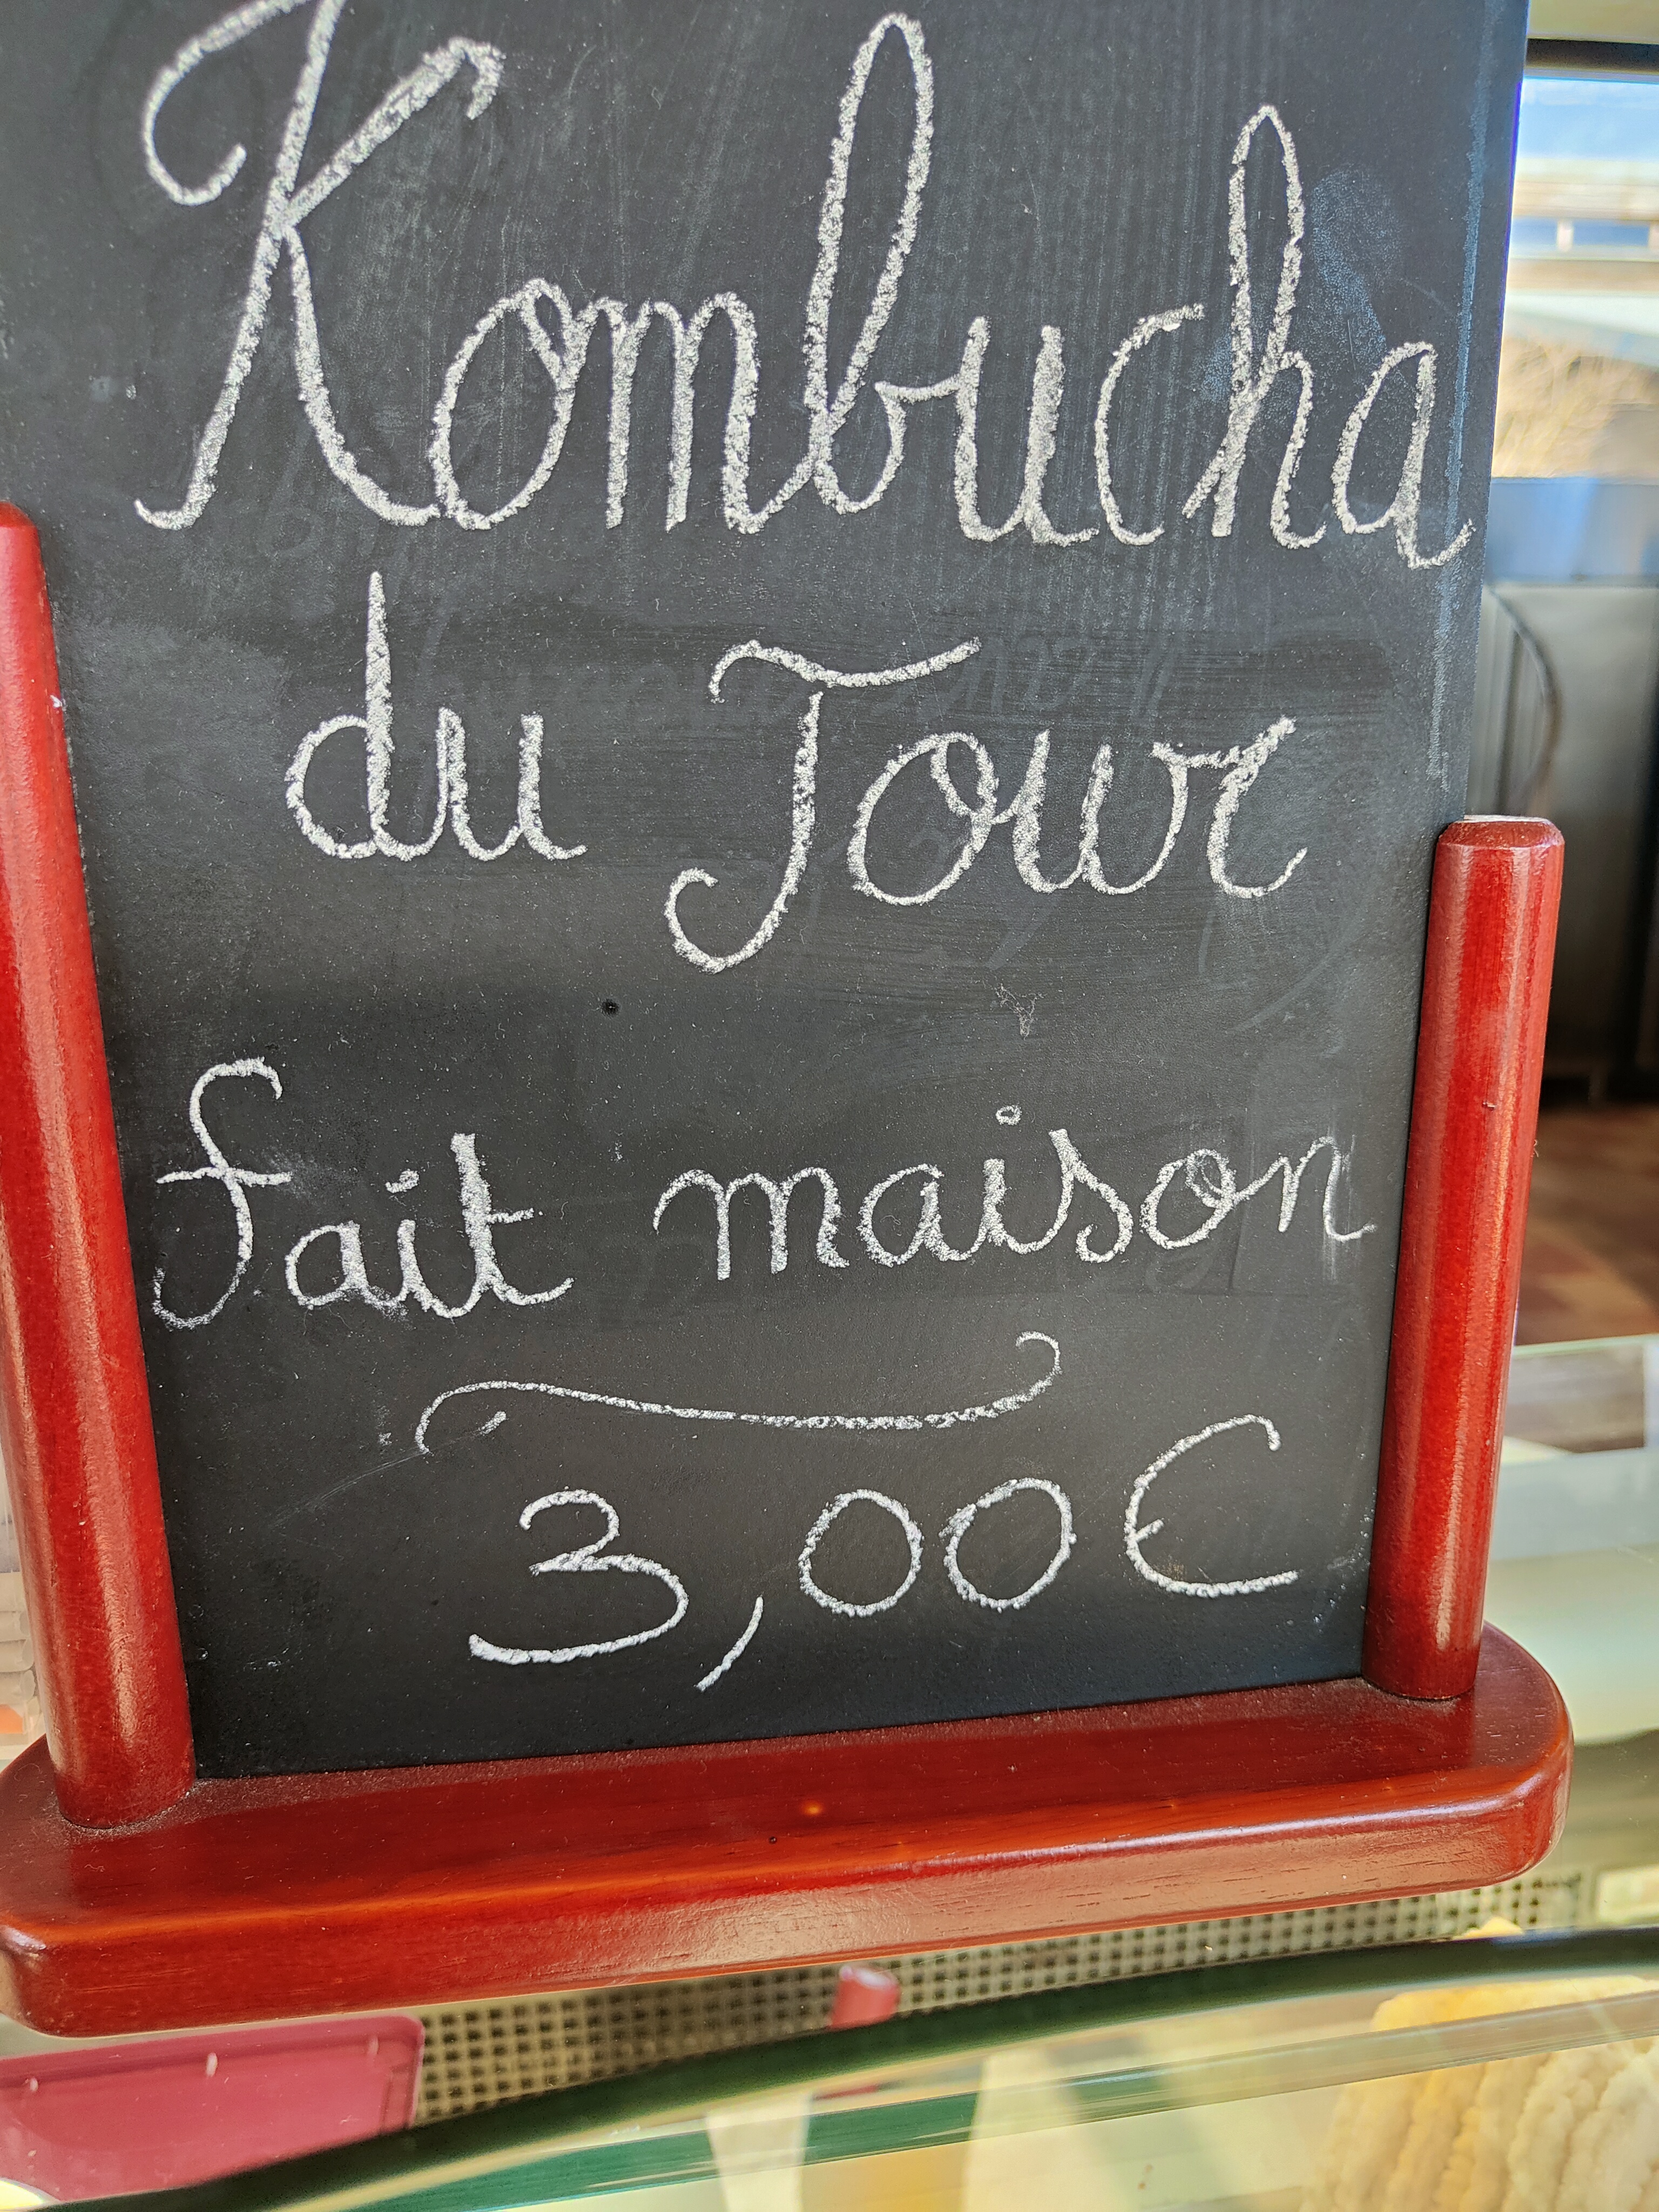 Kombucha
du Jour
fait maison
3,00€